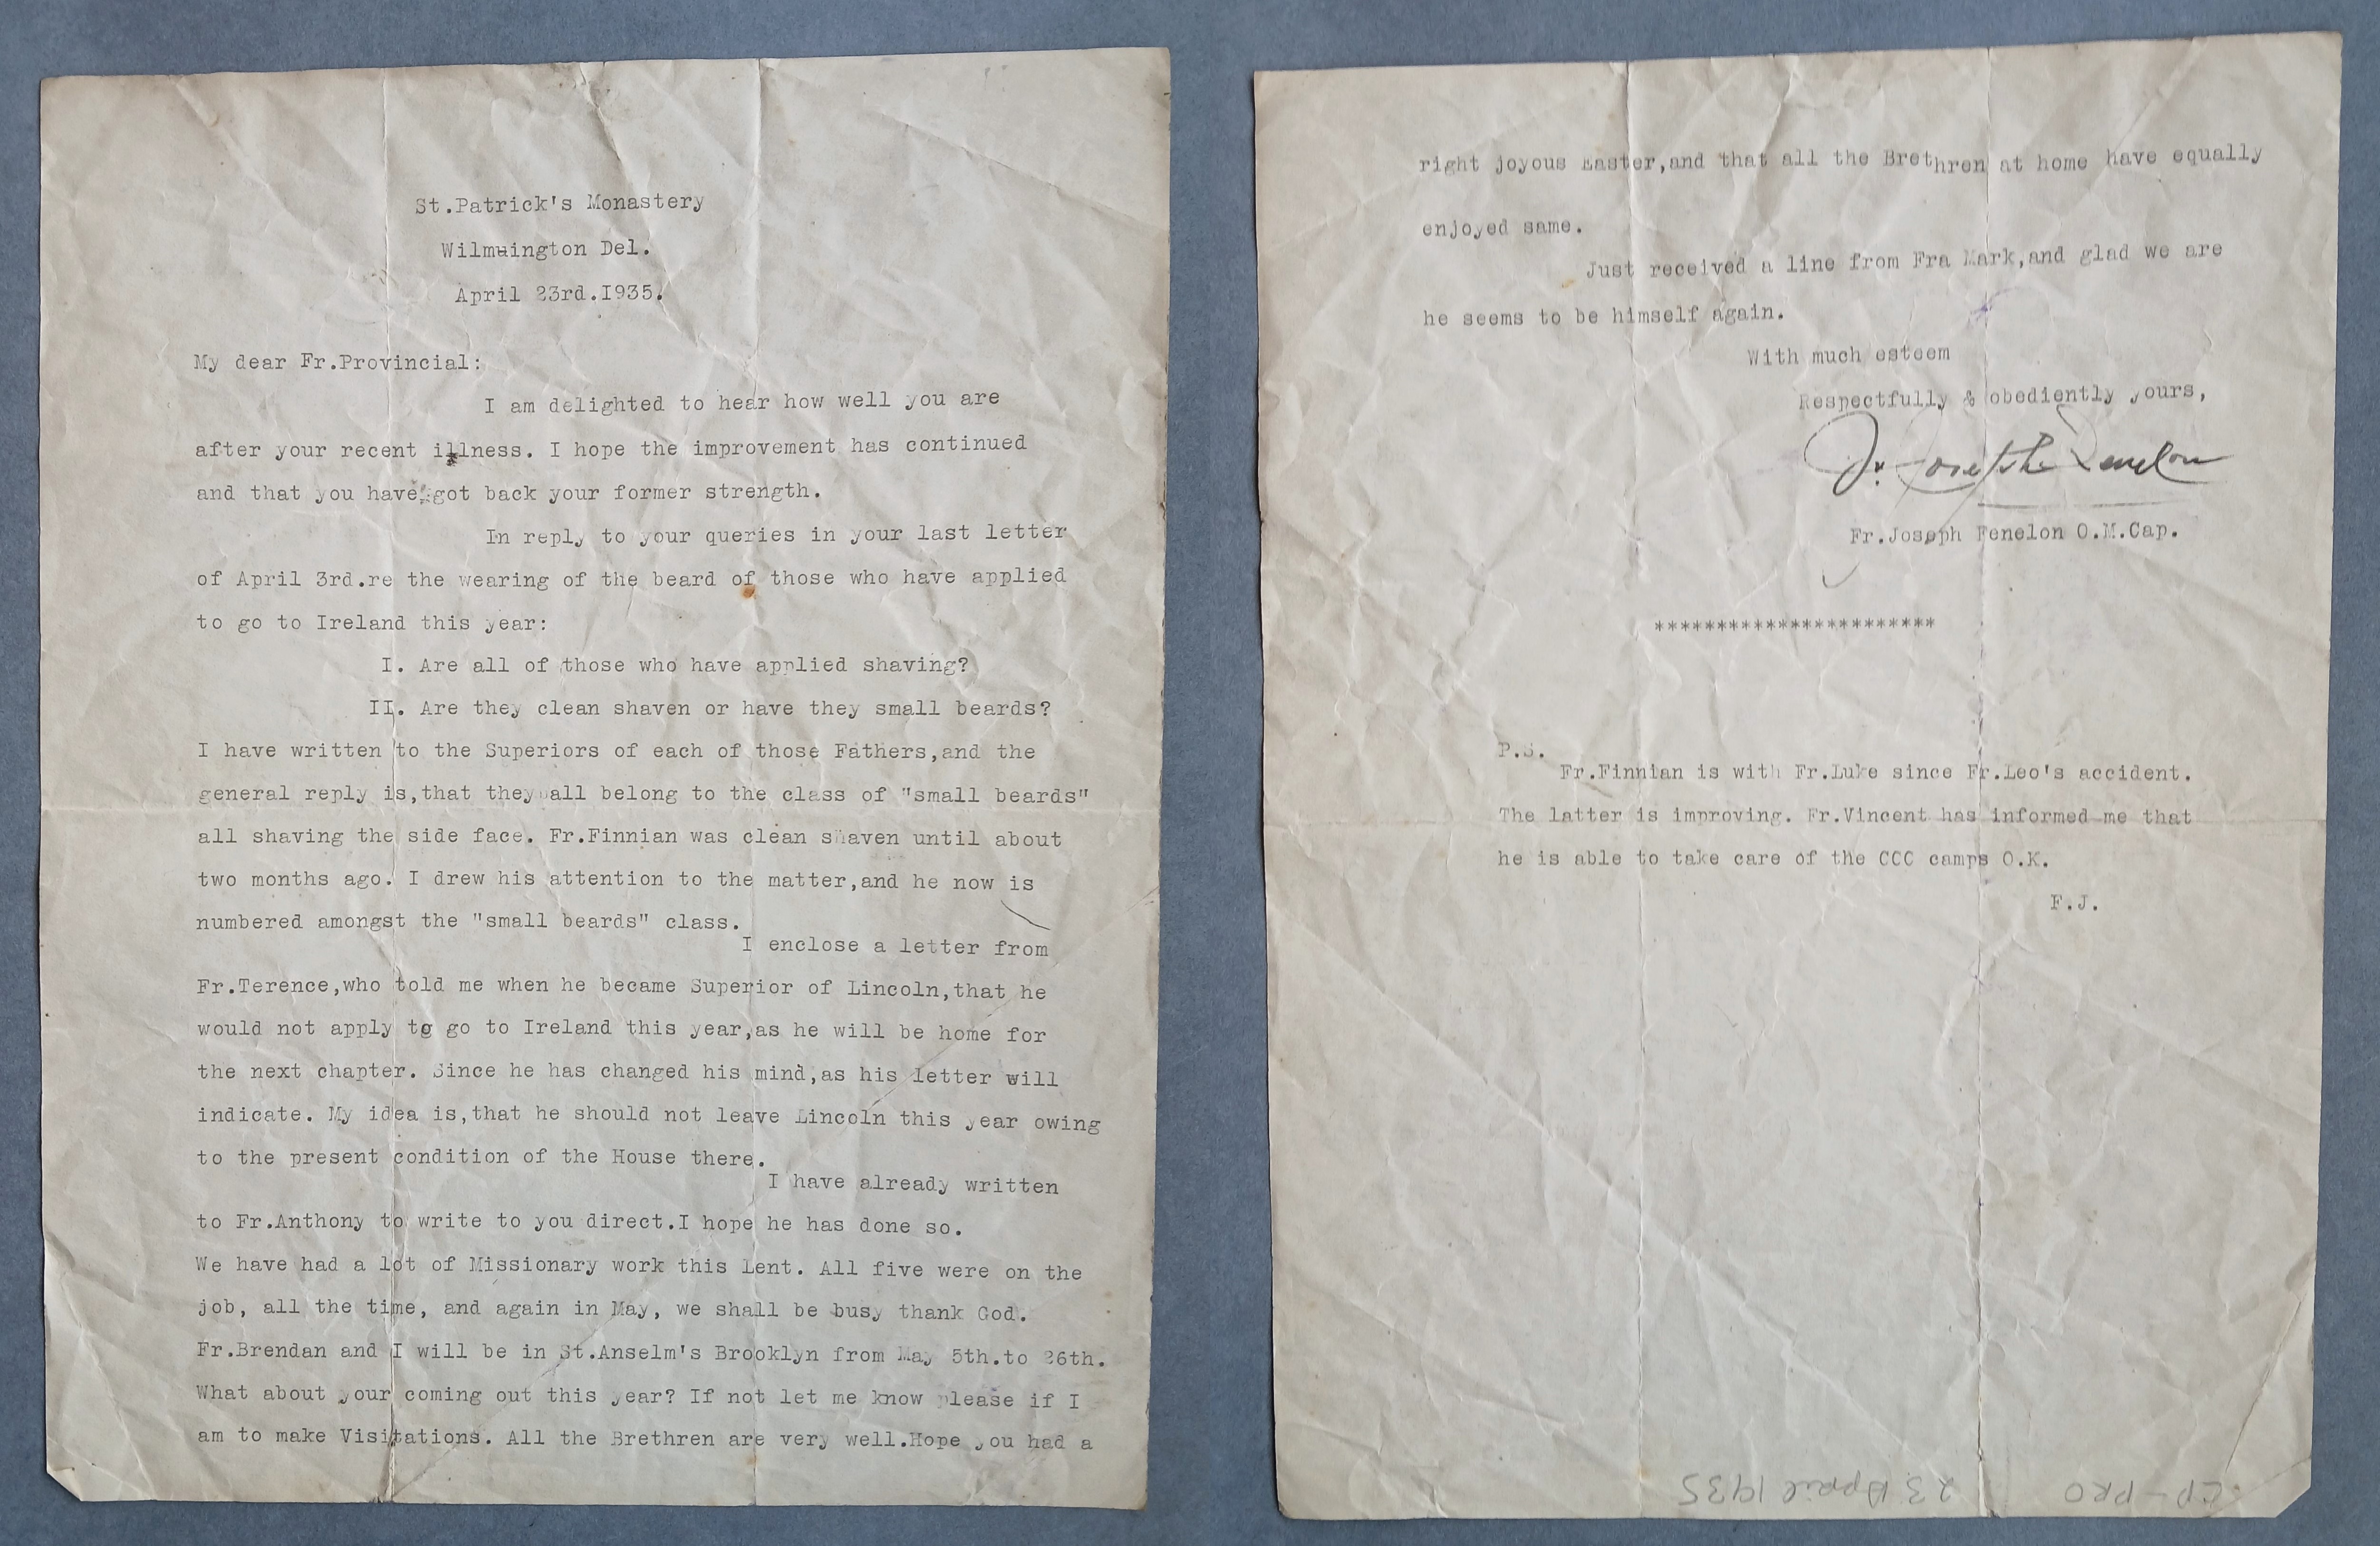 St.Patrick's Monastery
Wilmuington Del.
April 23rd.I935.
My dear Fr.Provincial:
I am delighted to hear how well you are
after your recent illness. I hope the improvement has continued
and that you have got back your former strength.
In reply to your queries in your last letter
of April 3rd.re the wearing of the beard of those who have applied
to go to Ireland this year:
I. Are all of those who have applied shaving?
II. Are they clean shaven or have they small beards?
I have written to the Superiors of each of those Fathers,and the
general reply is,that they all belong to the class of "small beards"
all shaving the side face. Fr.Finnian was clean shaven until about
two months ago. I drew his attention to the matter,and he now is
numbered amongst the "small beards" class.
I enclose a letter from
Fr.Terence,who told me when he became Superior of Lincoln,that he
would not apply to go to Ireland this year,as he will be home for
the next chapter. Since he has changed his mind,as his letter will
indicate. My idea is,that he should not leave Lincoln this year owing
to the present condition of the House there.
I have already written
to Fr.Anthony to write to you direct.I hope he has done so.
We have had a lot of Missionary work this Lent. All five were on the
job, all the time, and again in May, we shall be busy thank God.
Fr.Brendan and I will be in St.Anselm's Brooklyn from May 5th.to 26th.
What about your coming out this year? If not let me know please if I
am to make Visitations. All the Brethren are very well.Hope you had a
right joyous Easter,and that all the Brethren at home have equally
enjoyed same.
Just received a line from Fra Mark,and glad we are
he seems to be himself again.
With much esteem
Respectfully & obediently yours,
Fr. Joseph Fenelon
Fr.Joseph Fenelon O.M.Cap.
***********************
P.S.
Fr.Finnian is with Fr.Luke since Fr.Leo's accident.
The latter is improving. Fr.Vincent has informed me that
he is able to take care of the CCC camps O.K.
F.J.
CP-PRO 23 April 1935